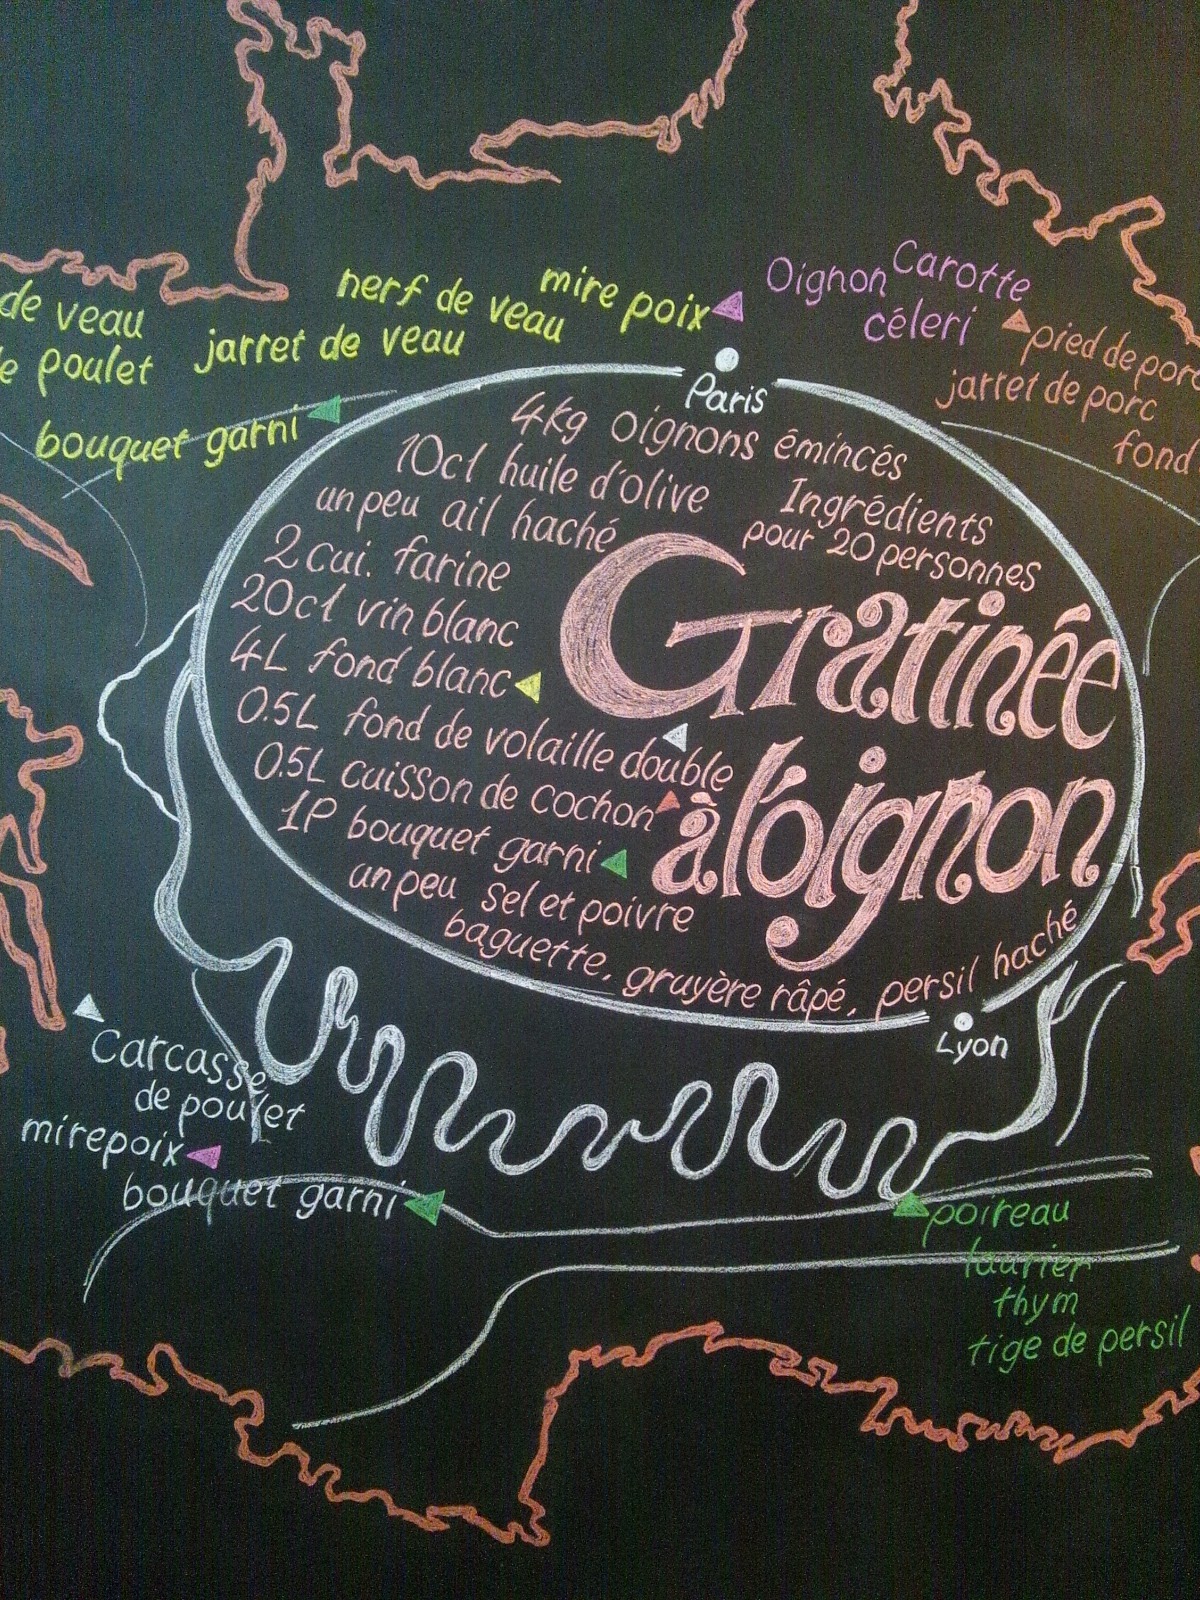 de veau
nerf de veau
mire poix
Oignon Carotte
céleri
poulet
jarret de veau
pied de porc
jarret de porc
fond
bouquet garni
Paris
4kg oignons émincés
10cl huile d'olive
un peu ail haché
Ingrédients
pour 20 personnes
2 cui. farine
20cl vin blanc
4L fond blanc
0.5L fond de volaille double
0.5L cuisson de cochon
1P bouquet garni
un peu sel et poivre
baguette, gruyère râpé, persil haché
Gratinée
à l'oignon
Lyon
Carcasse
de poulet
mirepoix
bouquet garni
poireau
laurier
thym
tige de persil